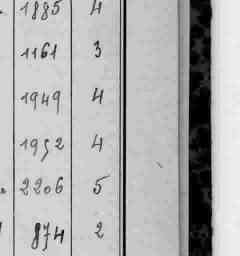 1885 4
1161 3
1949 4
1952 4
2206 5
874 2